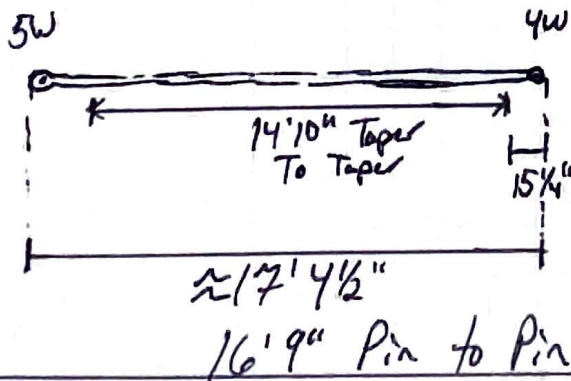 5W 4W
14'10" Taper
To Taper
15¼"
≈17'4½"
16'9" Pin to Pin